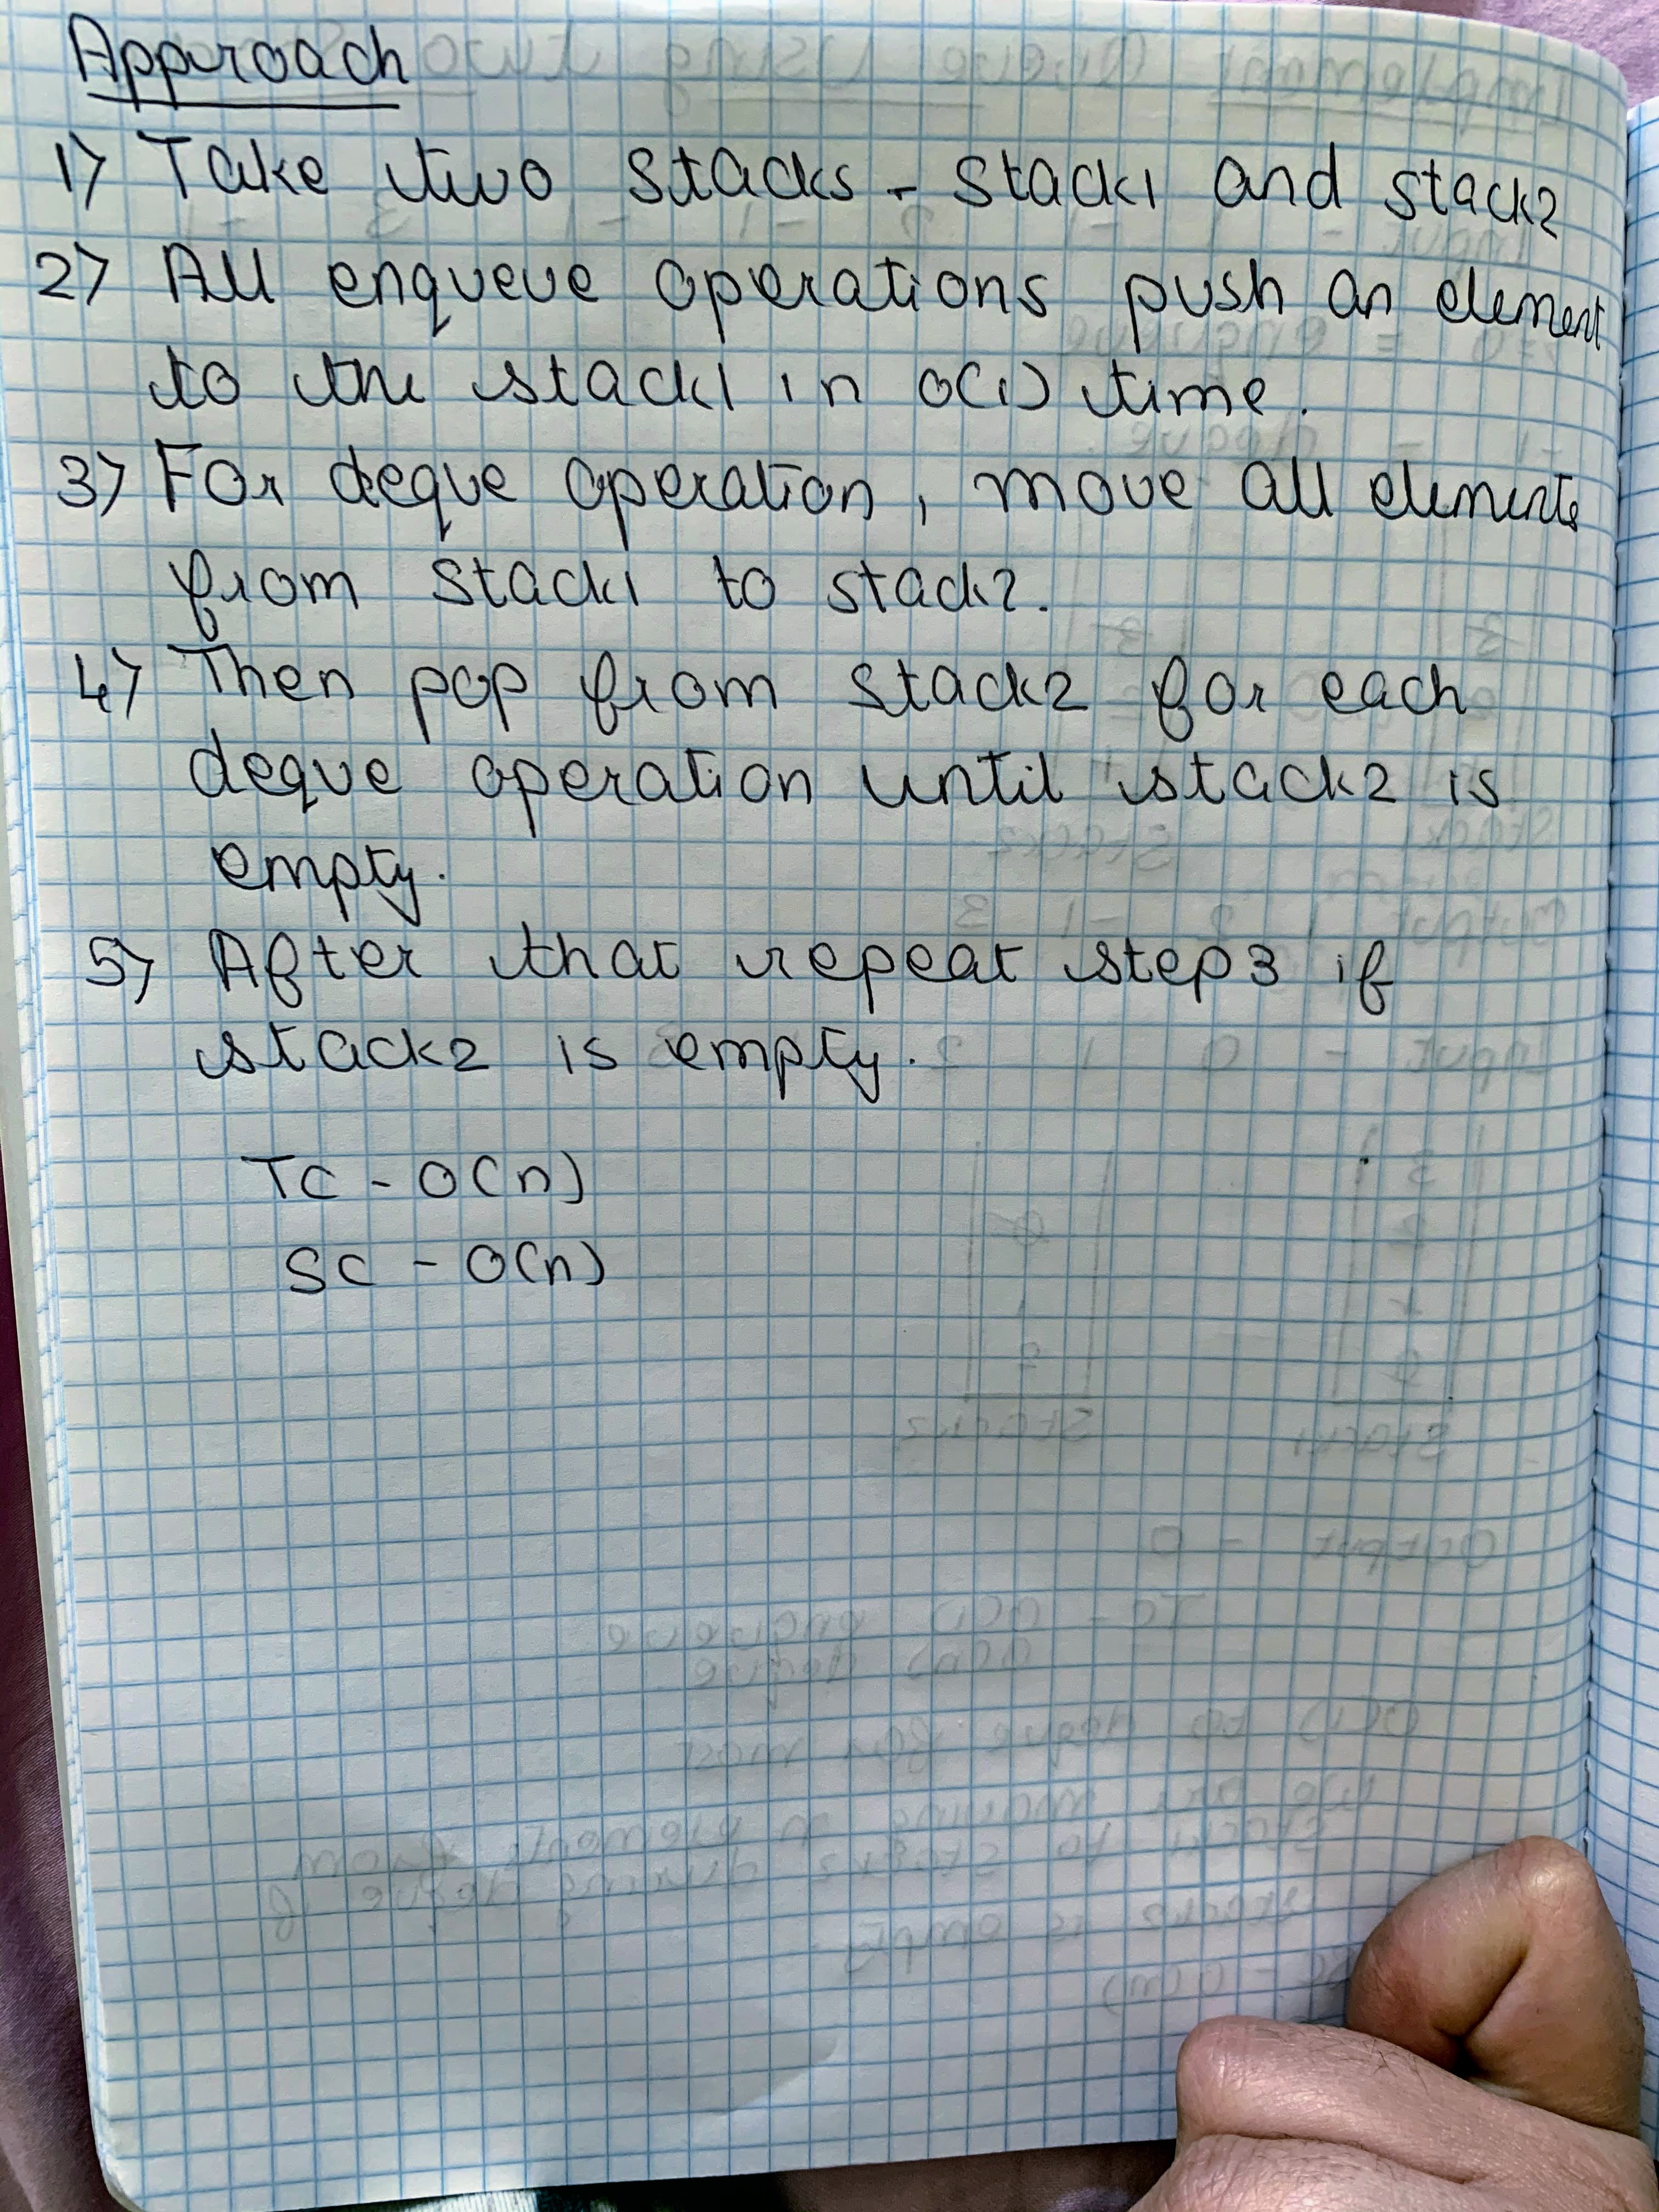 Approach
1) Take two stacks - stack1 and stack2
2) All enqueue operations push an element
to the stack1 in O(1) time.
3) For deque operation, move all elements
from stack1 to stack2.
4) Then pop from stack2 for each
deque operation until stack2 is
empty.
5) After that repeat step3 if
stack2 is empty.
TC - O(n)
SC - O(n)